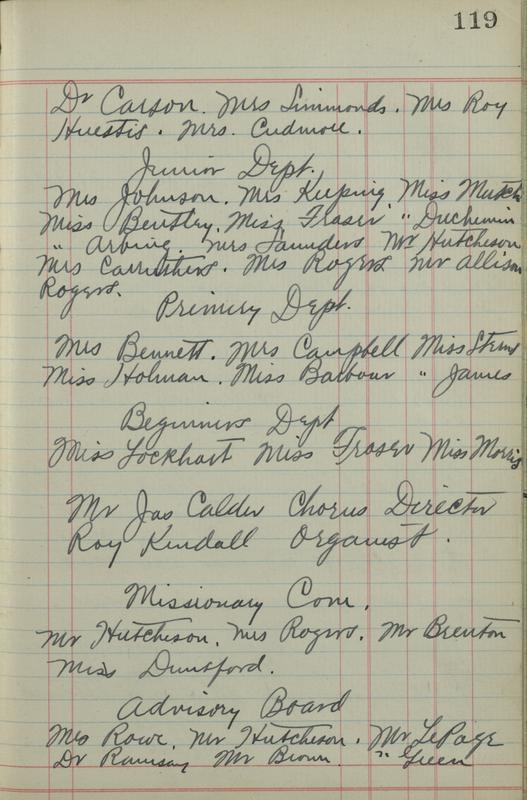 119
Dr Carson. Mrs Simmonds. Mrs Roy
Huestis. Mrs. Cudmore.
Junior Dept.
Mrs Johnson. Mrs Keeping. Miss Mutch
Miss Bentley. Miss Fraser " Duchemin
" Arbing. Mrs Saunders Mr Hutcheson
Mrs Carruthers. Mrs Rogers Mr Allison
Rogers.
Primary Dept.
Mrs Bennett. Mrs Campbell Miss Sterns
Miss Holman. Miss Barbour " James
Beginners Dept
Miss Lockhart Miss Fraser Miss Morris
Mr Jas Calder Chorus Director
Roy Kendall Organist.
Missionary Com.
Mr Hutcheson. Mrs Rogers. Mr Brenton
Miss Duntsford.
Advisory Board
Mrs Rowe. Mr Hutcheson. Mr LePage
Dr Ramsay Mr Brown. " Green